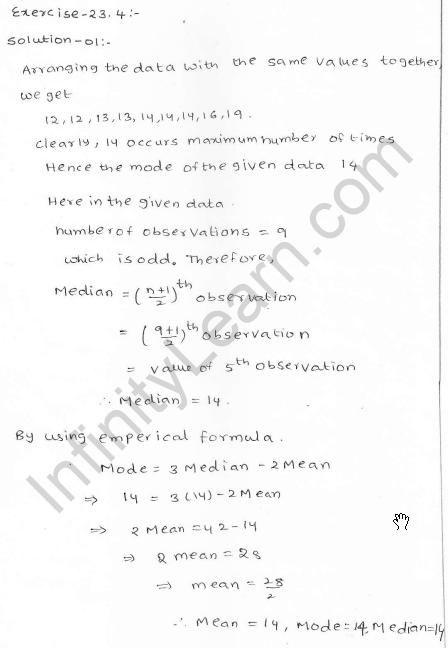 Exercise-23.4:-
Solution-01:-
Arranging the data with the same values together,
we get
12,12,13,13,14,14,14,16,19.
clearly, 14 occurs maximum number of times
Hence the mode of the given data 14
Here in the given data.
number of observations = 9
which is odd. Therefore,
Median = (n+1/2)th observation
= (9+1/2)th observation
= value of 5th observation
∴ Median = 14.
By using emperical formula.
Mode = 3 Median - 2 Mean
⇒ 14 = 3(14) - 2 Mean
⇒ 2 Mean = 42 - 14
⇒ 2 mean = 28
⇒ mean = 28/2
∴ Mean = 14, Mode = 14, Median = 14
InfinityLearn.com